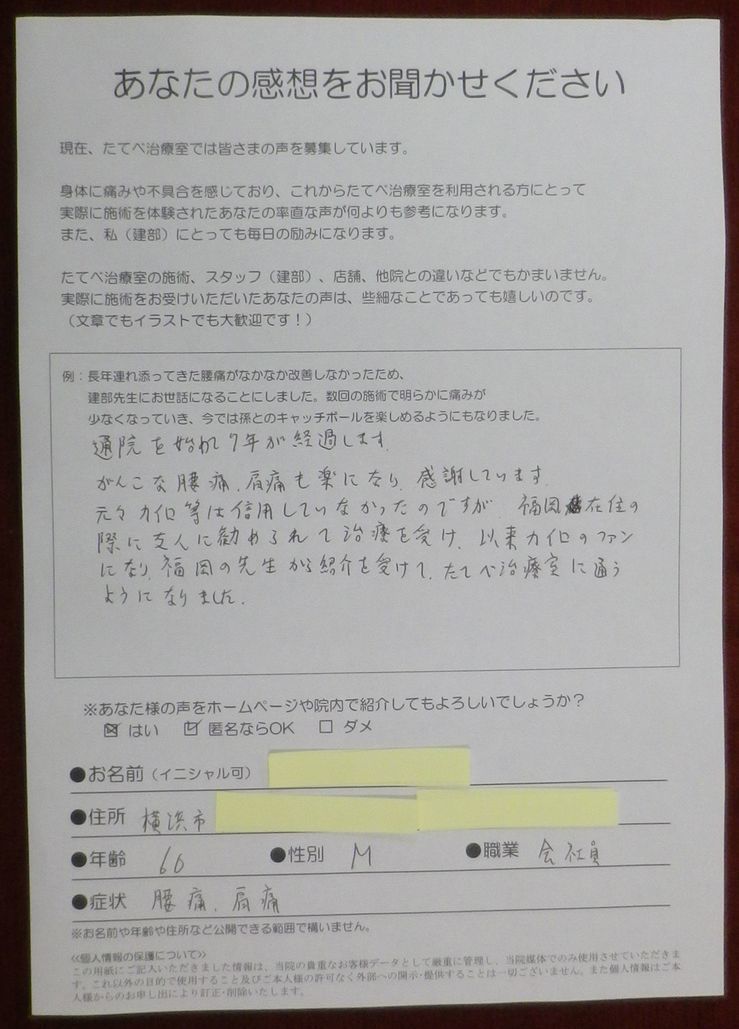 あなたの感想をお聞かせください
現在、たてべ治療室では皆さまの声を募集しています。
身体に痛みや不具合を感じており、これからたてべ治療室を利用される方にとって
実際に施術を体験されたあなたの率直な声が何よりも参考になります。
また、私（建部）にとっても毎日の励みになります。
たてべ治療室の施術、スタッフ（建部）、店舗、他院との違いなどでもかまいません。
実際に施術をお受けいただいたあなたの声は、些細なことであっても嬉しいのです。
（文章でもイラストでも大歓迎です！）
例：長年連れ添ってきた腰痛がなかなか改善しなかったため、
建部先生にお世話になることにしました。数回の施術で明らかに痛みが
少なくなっていき、今では孫とのキャッチボールを楽しめるようにもなりました。
通院を始め7年が経過します.
がんこな腰痛、肩痛も楽になり、感謝しています.
元々カイロ等は信用していなかったのですが、福岡在住の
際に友人に勧められて治療を受け、以来カイロのファン
になり、福岡の先生から紹介を受けて、たてべ治療室に通う
ようになりました.
※あなた様の声をホームページや院内で紹介してもよろしいでしょうか？
☒ はい ☑ 匿名ならOK □ ダメ
●お名前（イニシャル可）
●住所 横浜市
●年齢 60 ●性別 M ●職業 会社員
●症状 腰痛、肩痛
※お名前や年齢や住所など公開できる範囲で構いません。
≪個人情報の保護について≫
この用紙にご記入いただきました情報は、当院の貴重なお客様データとして厳重に管理し、当院媒体でのみ使用させていただきま
す。これ以外の目的で使用すること及びご本人様の許可なく外部への開示・提供することは一切ございません。また個人情報はご本
人様からのお申し出により訂正・削除いたします。